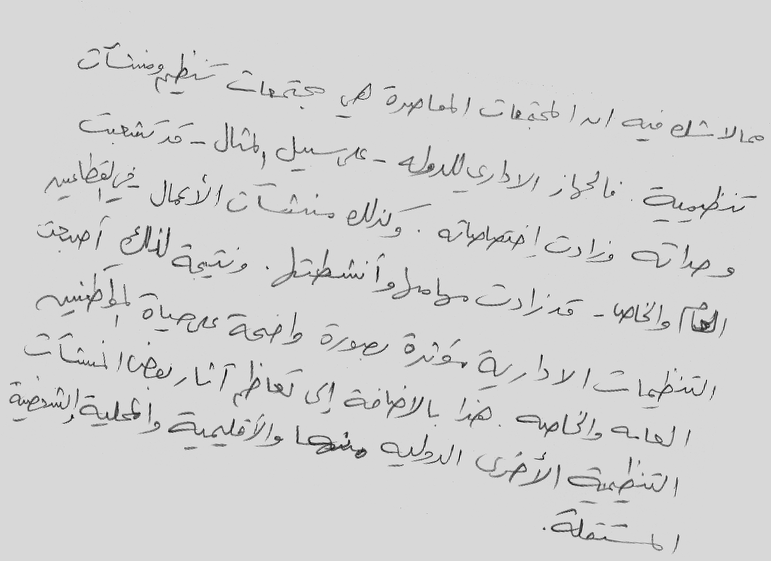 مما لا شك فيه ان المجتمعات المعاصرة هي مجتمعات تنظيم ومنشآت
تنظيمية. فالجهاز الاداري للدوله - على سبيل المثال - قد تشعبت
وحداته وزادت إختصاصاته. وكذلك منشآت الأعمال - في القطاعين
العام والخاص - قد زادت مهامها وأنشطتها. ونتيجة لذلك أصبحت
التنظيمات الادارية مؤثرة بصورة واضحة على حياة المواطنين
العامه والخاصه. هذا بالاضافة إلى تعاظم آثار بعض المنشآت
التنظيمية الأخرى الدوليه منها والأقليمية والمحلية والشعبية
المستقلة.